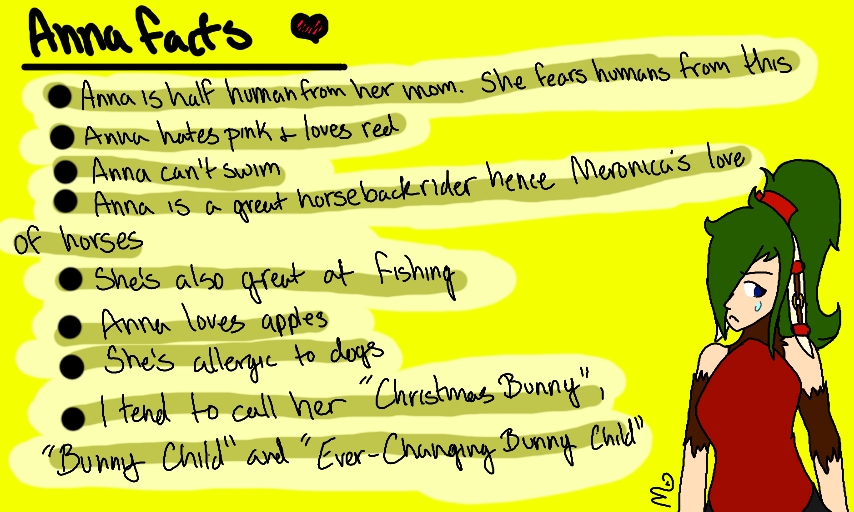 Anna Facts
Anna is half human from her mom. She fears humans from this
Anna hates pink & loves red
Anna can't swim
Anna is a great horseback rider hence Meronica's love
of horses
She's also great at fishing
Anna loves apples
She's allergic to dogs
I tend to call her "Christmas Bunny",
"Bunny Child" and "Ever-Changing Bunny Child"